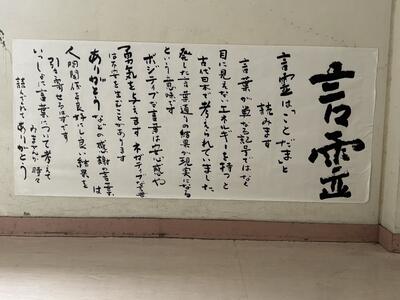 言霊
言霊は「ことだま」と
読みます
言葉が単なる記号ではなく
目に見えないエネルギーを持つと
古代日本で考えられていました
発した言葉通りの結果が現実になる
という意味です
ポジティブな言葉は安心感や
勇気を与えます ネガティブな言葉
は不安を生むことがあります
ありがとうなどの感謝の言葉は
人間関係を良好にし良い結果を
引き寄せるはずです
みなさんが時々
いっしょに言葉について考えて
読んでくれてありがとう